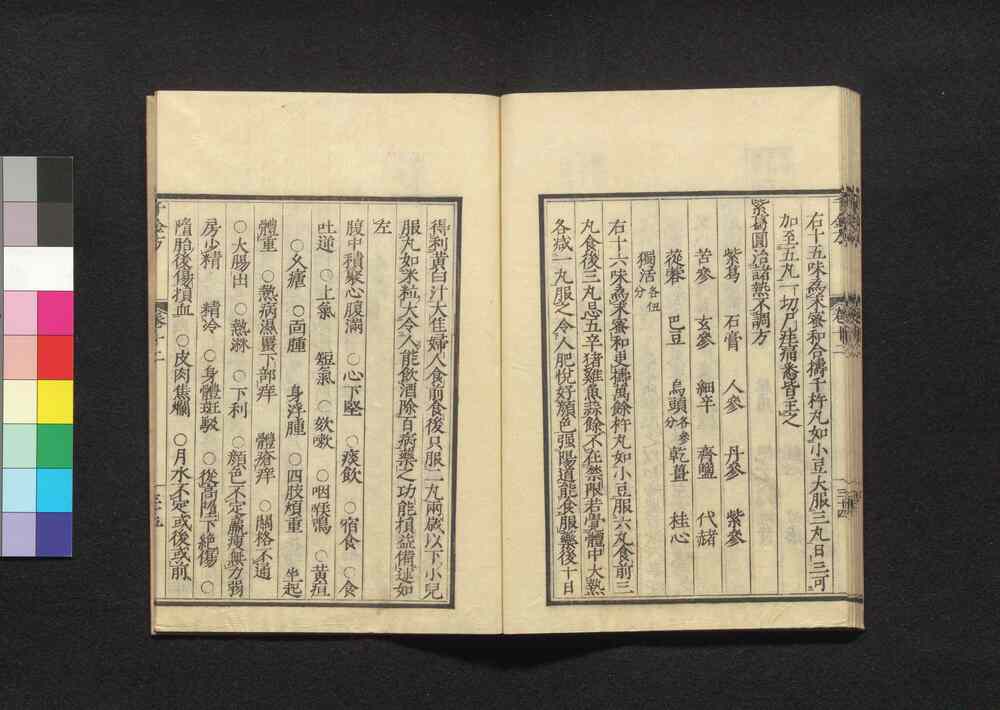 右十五味爲末蜜和合擣千杵丸如小豆大服三丸日三可
加至五丸一切尸疰痛悉皆主之
紫葛圓治諸熱不調方
紫葛 石膏 人參 丹參 紫參
苦參 玄參 細辛 齊鹽 代赭
蓯蓉 巴豆 烏頭 乾薑 桂心
獨活
右十六味爲末蜜和更擣萬餘杵丸如小豆服六丸食前三
丸食後三丸忌五辛猪雞魚蒜餘不在禁限若覺體中大熱
各減一丸服之令人肥悅好顏色强陽道能食服藥後十日
得利黃白汁大佳婦人食前食後只服二丸兩歲以下小兒
服丸如米粒大令人能飲酒除百病藥之功能損益備述如
左
腹中積聚心腹滿 ○心下堅 ○痰飲 ○宿食 ○食
吐逆 ○上氣 短氣 ○欬嗽 ○咽喉鳴 ○黃疸
○久瘧 ○面腫 身浮腫 ○四肢煩重 坐起
體重 ○熱病濕䘌下部痒 體瘡痒 ○關格不通
○大腸出 ○熱淋 ○下利 ○顏色不定羸瘦無力弱
房少精 精冷 ○身體斑駁 ○從高墮下絕傷 ○
墮胎後傷損血 ○皮肉焦爛 ○月水不定或後或前